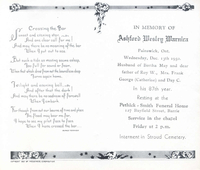 Crossing the Bar
Sunset and evening star,
And one clear call for me!
And may there be no moaning of the bar
When I put out to sea.
But such a tide as moving seems asleep,
Too full for sound or foam,
When that which drew from out the boundless deep
Turns again home.
Twilight and evening bell,
And after that the dark!
And may there be no sadness of farewell
When I embark.
For though from out our bourne of time and place
The flood may bear me far,
I hope to see my pilot face to face
When I have crossed the bar.
IN MEMORY OF
Ashford Wesley Warnica
Painswick, Ont.
Wednesday, Dec. 13th 1950
Husband of Bertha May and dear
father of Roy W., Mrs. Frank
George (Catherine) and Day C.
In his 87th year
Resting at the
Pethick - Smith Funeral Home
Bayfield Street, Barrie
Service in the chapel
Friday at 2 p.m.
Interment in Stroud Cemetery